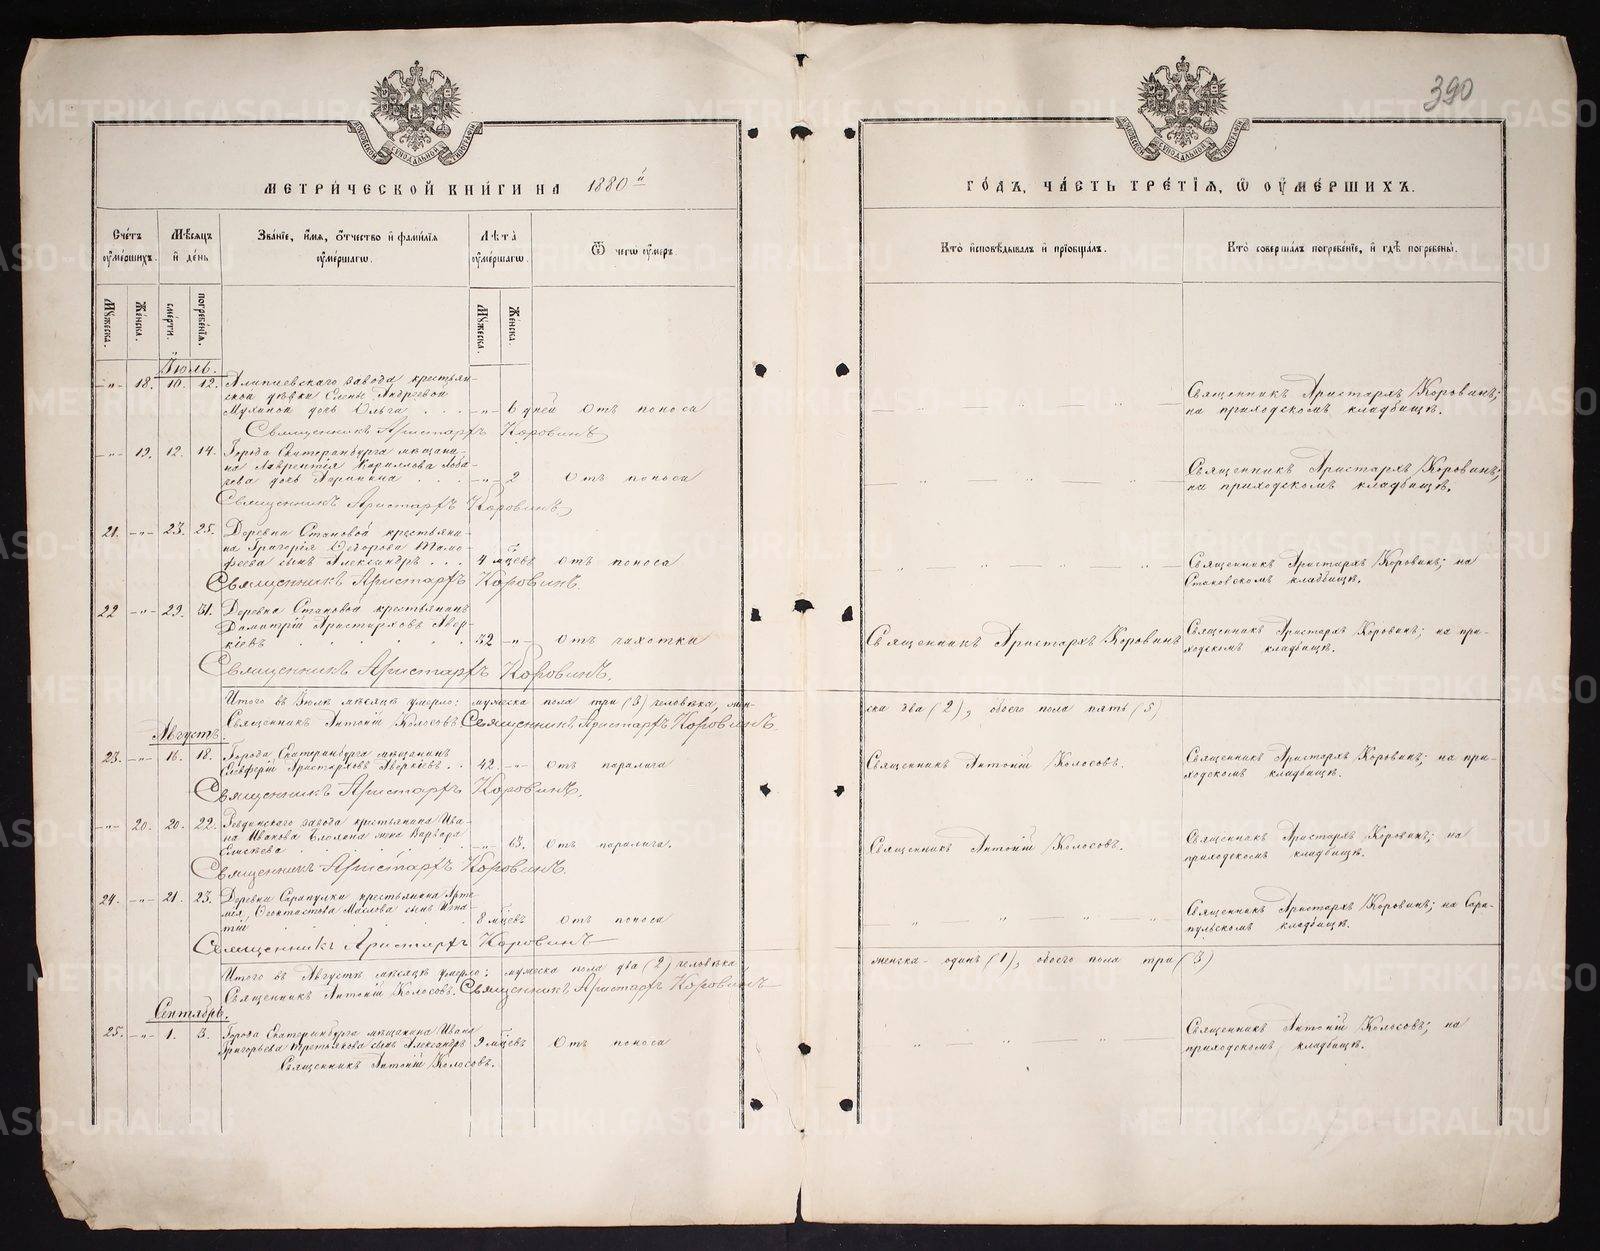 390
МЕТРИЧЕСКОЙ КНИГИ НА 1880й
ГОДЪ, ЧАСТЬ ТРЕТІЯ, Ѿ ОУМЕРШИХЪ.
Счетъ оумершихъ.
Мѣсяцъ и день
Званіе, имя, отчество и фамилія оумершагѡ.
Лѣта оумершагѡ.
Ѿ чегѡ оумеръ.
Кто исповѣдывалъ и пріобщалъ.
Кто совершалъ погребеніе, и гдѣ погребены.
Мужеска.
Женска.
смерти.
погребенія.
Мужеска.
Женска.
Іюль.
-"- 18. 10. 12. Алапаевскаго завода крестьян-
ской дѣвки Елены Андреевой
Мухиной дочь Ольга . . . -"- 6 дней Отъ поноса
Священникъ Аристархъ Коровинъ;
на приходскомъ кладбищѣ.
Священникъ Аристархъ Коровинъ
-"- 19. 12. 14. Города Екатеринбурга мѣщани-
на Лаврентія Кириллова Лоба-
чева дочь . . . -"- 2 Отъ поноса
Священникъ Аристархъ Коровинъ;
на приходскомъ кладбищѣ.
Священникъ Аристархъ Коровинъ
21. -"- 23. 25. Деревни Становой крестьяни-
на Григорія Ѳедорова Тимо-
феева сынъ Александръ . . . 4 мѣсевъ Отъ поноса
Священникъ Аристархъ Коровинъ; на
Становскомъ кладбищѣ.
Священникъ Аристархъ Коровинъ.
22 -"- 29. 31. Деревни Становой крестьянинъ
Димитрій Аристарховъ Авер-
кіевъ . . . . 32 -"- Отъ чахотки
Священникъ Аристархъ Коровинъ
Священникъ Аристархъ Коровинъ; на при-
ходскомъ кладбищѣ.
Священникъ Аристархъ Коровинъ.
Итого въ Іюлѣ мѣсяцѣ умерло: мужеска пола три (3) человѣка, жен-
ска два (2), обоего пола пять (5)
Священникъ Антоній Колосовъ Священникъ Аристархъ Коровинъ
Августъ.
23. -"- 16. 18. Города Екатеринбурга мѣщанинъ
Елевферій Аристарховъ Аверкіевъ. . 42. -"- Отъ паралича
Священникъ Антоній Колосовъ.
Священникъ Аристархъ Коровинъ; на при-
ходскомъ кладбищѣ.
Священникъ Аристархъ Коровинъ.
-"- 20. 20. 22. Ревдинскаго завода крестьянина Ива-
на Иванова жена Варвара
Елисѣева . . . . -"- 63. Отъ паралича.
Священникъ Антоній Колосовъ.
Священникъ Аристархъ Коровинъ; на
приходскомъ кладбищѣ.
Священникъ Аристархъ Коровинъ.
24. -"- 21. 23. Деревни Сарапулки крестьянина Арте-
мія Маслова сынъ Игна-
тій . . . . 8 мѣсевъ Отъ поноса
Священникъ Аристархъ Коровинъ; на Сара-
пульскомъ кладбищѣ.
Священникъ Аристархъ Коровинъ
Итого въ Августѣ мѣсяцѣ умерло: мужеска пола два (2) человѣка
женска - одинъ (1), обоего пола три (3)
Священникъ Антоній Колосовъ. Священникъ Аристархъ Коровинъ
Сентябрь.
25. -"- 1. 3. Города Екатеринбурга мѣщанина Ивана
Григорьева сынъ Александръ 9 мѣсевъ Отъ поноса
Священникъ Антоній Колосовъ; на
приходскомъ кладбищѣ.
Священникъ Антоній Колосовъ.
METRIKI.GASO-URAL.RU